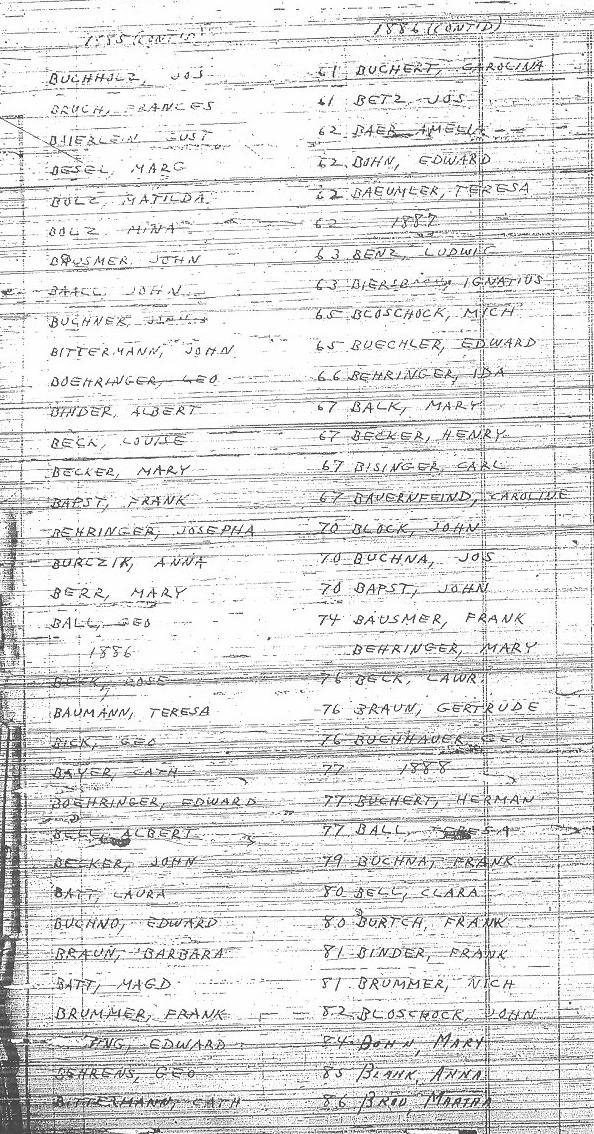 1885 (CONT'D)
BUCHHOLZ, JOS
BRUCH, FRANCES
BAIERLEIN GUST
BESEL, MARG
BOLZ, MATILDA
BOLZ MINA
BAUSMER, JOHN
BAALL JOHN
BUCHNER,
BITTERMANN, JOHN
BOEHRINGER, GEO
BINDER, ALBERT
BECK, LOUISE
BECKER, MARY
BAPST, FRANK
BEHRINGER, JOSEPHA
BURCZIK, ANNA
BERR, MARY
BALL, GEO
1886
BECK, ROSE
BAUMANN, TERESA
BICK, GEO
BAYER, CATH
BOEHRINGER, EDWARD
BELL, ALBERT
BECKER, JOHN
BATT, LAURA
BUCHNO, EDWARD
BRAUN, BARBARA
BATT, MAGD
BRUMMER, FRANK
EDWARD
BEHRENS, GEO
BITTERMANN, CATH
1886 (CONT'D)
61 BUCHERT, CAROLINA
61 BETZ, JOS
62 BAER AMELIA
62 BOHN, EDWARD
62 BAEUMLER, TERESA
62 1887
63 BENZ, LUDWIG
63 IGNATIUS
65 BLOSCHOCK, MICH
65 BUECHLER, EDWARD
66 BEHRINGER, IDA
67 BALK, MARY
67 BECKER, HENRY
67 BISINGER, CARL
67 BAUERNFEIND, CAROLINE
70 BLOCK, JOHN
70 BUCHNA, JOS
70 BAPST, JOHN
74 BAUSMER, FRANK
BEHRINGER, MARY
76 BECK, LAWR.
76 BRAUN, GERTRUDE
76 BUCHHAUER GEO
77 1888
77 BUCHERT, HERMAN
77 BALL, TERESA
79 BUCHNA, FRANK
80 BELL, CLARA
80 BURTCH, FRANK
81 BINDER, FRANK
81 BRUMMER, NICH
82 BLOSCHOCK, JOHN
84 BOHN, MARY
85 BLANK, ANNA
86 BROD, MARTHA